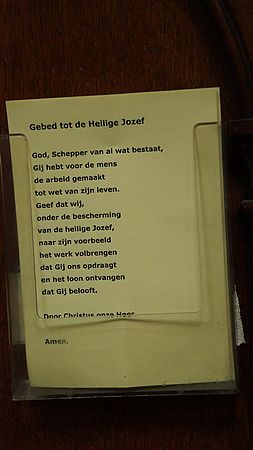 Gebed tot de Heilige Jozef
God, Schepper van al wat bestaat,
Gij hebt voor de mens
de arbeid gemaakt
tot wet van zijn leven.
Geef dat wij,
onder de bescherming
van de heilige Jozef,
naar zijn voorbeeld
het werk volbrengen
dat Gij ons opdraagt
en het loon ontvangen
dat Gij belooft.
Door Christus onze Heer.
Amen.